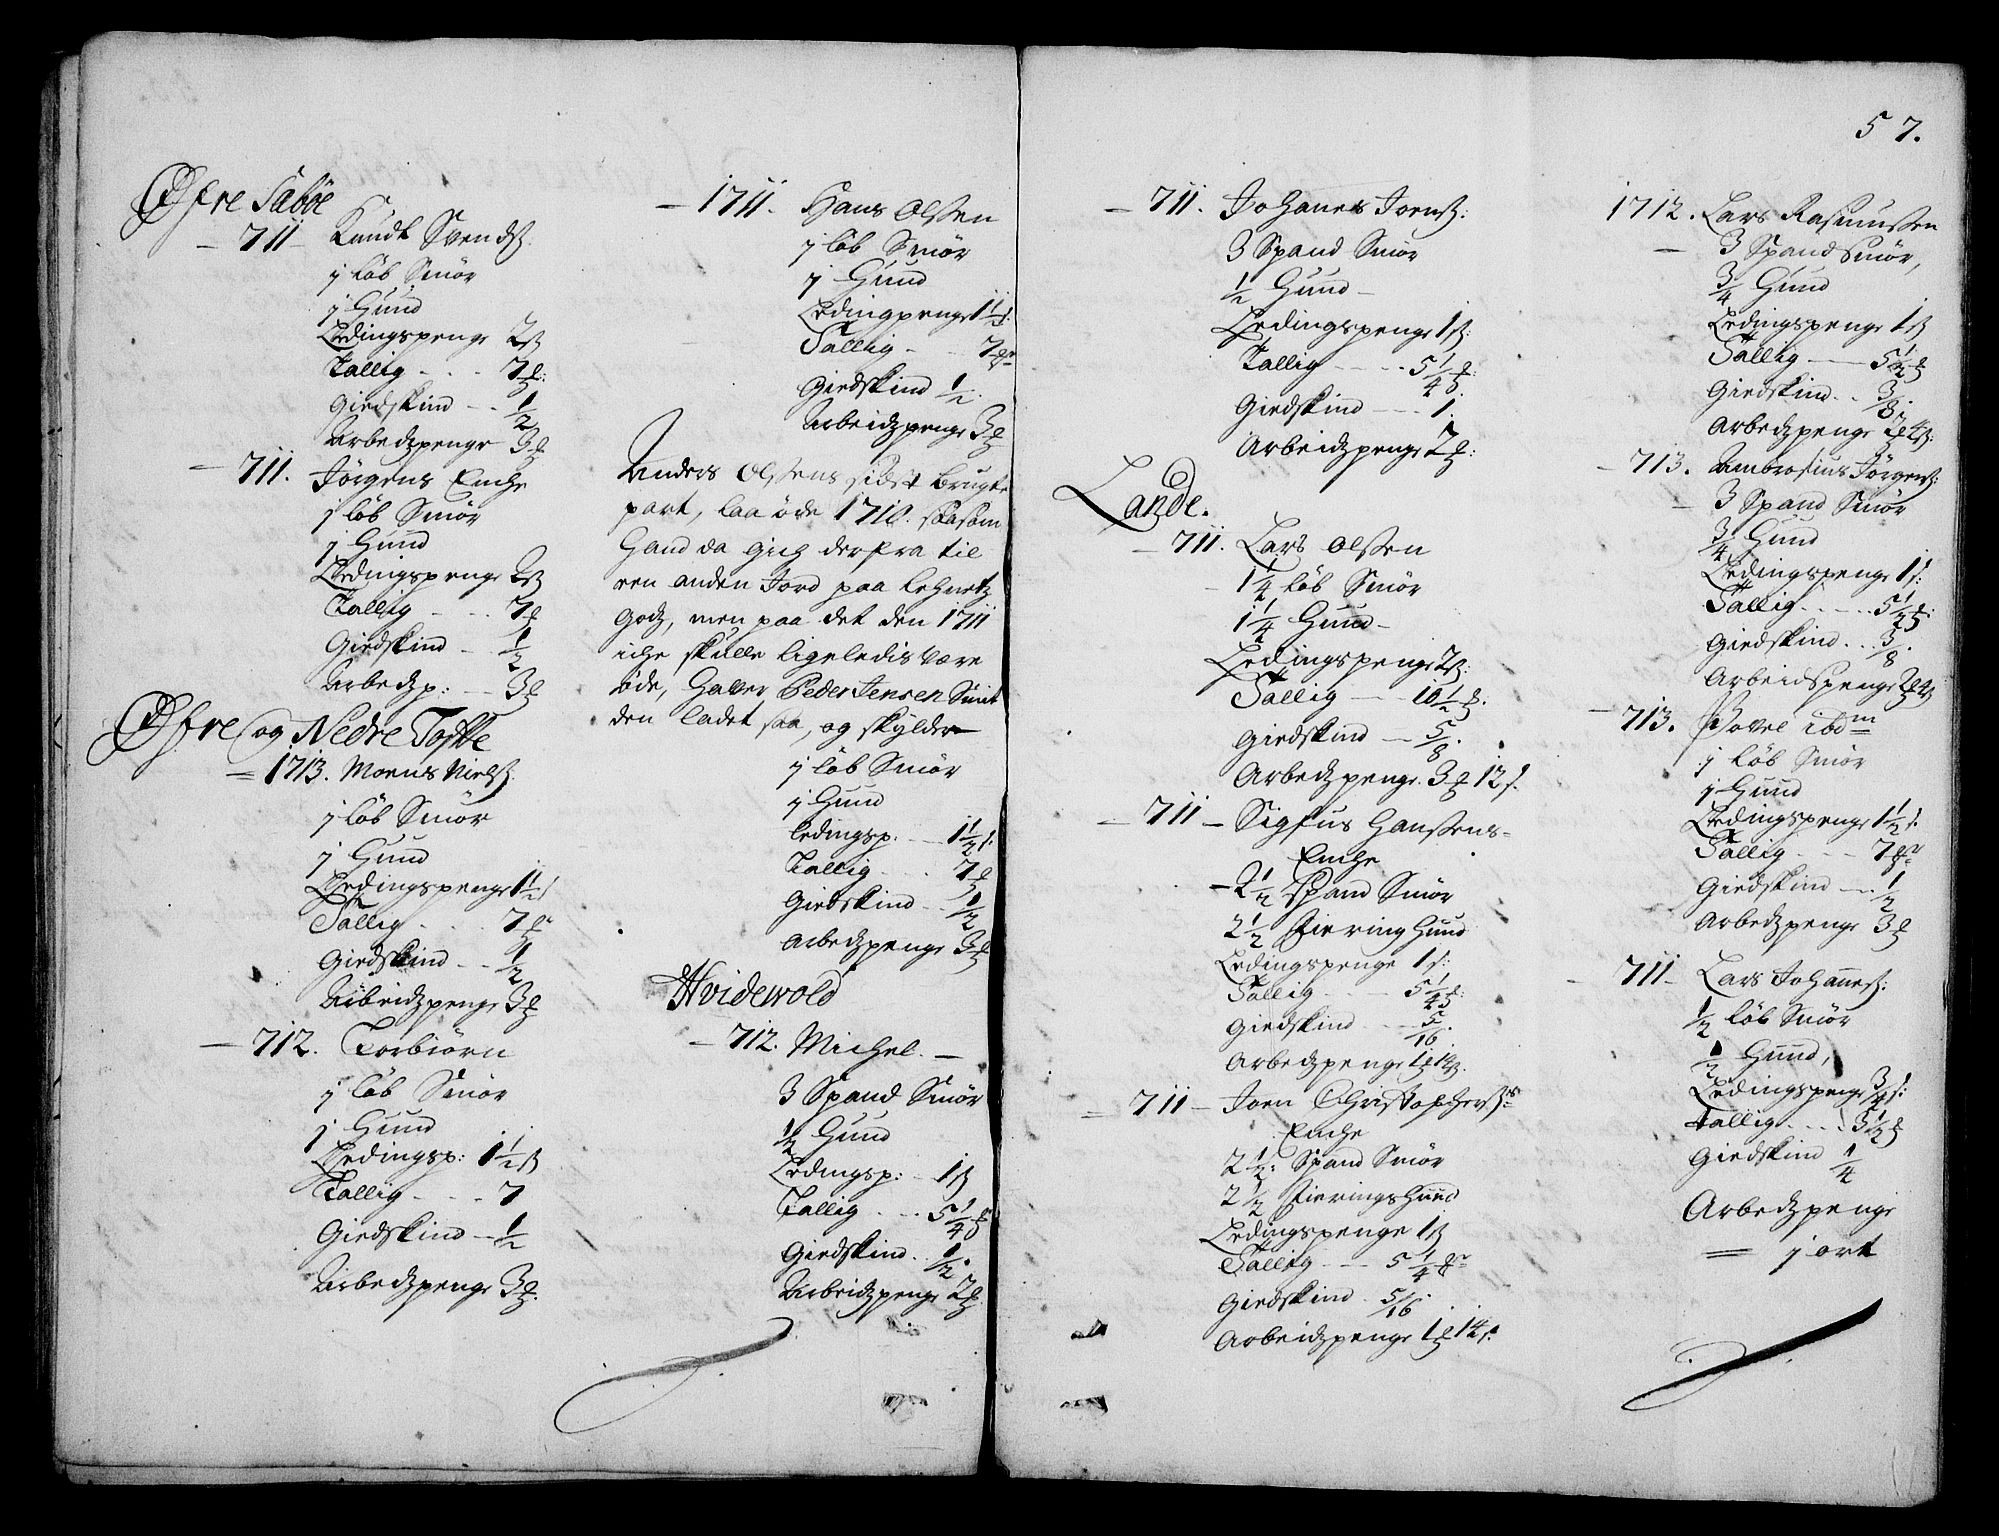 57.
Øfre Tabøe
– 711 – Knudt Svends:
j løb Smør
j Hund
Ledingspenge 2 s
Tallig - - - 7 ℔:
Giedskind - - 1/2
Arbedzpenge 3 ℔
– 711. Jørgens Enche
j løb Smør
j Hund
Ledingspenge 2 s
Tallig - - - 7 ℔
Giedskind - 1/2
Arbedzp: - 3 ℔
Øfre og Nedre Tofte
= 1713. Moens Niels:
j løb Smør
j Hund
Ledingspenge 1 1/2 s
Tallig - - - 7 ℔
Giedskind - - 1/2
Arbeidzpenge 3 ℔
– 712. Torbiørn
j løb Smør
j Hund
Ledingsp: 1 1/2 s
Tallig - - - 7
Giedskind - 1/2
Arbedzpenge 3 ℔:
– 1711. Hans Olssen
j løb Smør
j Hund
Ledingpenge 1 1/2 s.
Tallig - - 7 ℔r
Giedskind 1/2.
Arbeidzpenge 3 ℔
Anders Olssens sidst brugte
part, laa øde 1710. saasom
Hand da gich derfra til
een anden Jord paa Lehnetz
Godz, men paa det den 1711
iche skulle ligeledis være
øde, haver Peder Jensen Smit
den ladet saa, og skylder
j løb Smør
j Hund
ledingsp: - 1 1/2 s:
Tallig - - - 7 ℔
Giedskind - - 1/2
Arbedzpenge 3 ℔
Hvidevold
– 712. Michel. –
3 Spand Smør
1/2 Hund
Ledingsp: - 1 s
Tallig - - 5 1/4 ℔
Giedskind. - 1/2.
Arbeidzpenge 2 ℔
– 711. Johanes Joens:
3 Spand Smør
1/2 Hund –
Ledingspenge 1 s.
Tallig - - - 5 1/4 ℔:
Giedskind - - - 1.
Arbeidzpenge 2 ℔:
Lande.
– 711. Lars Olssen
– 1 1/4 løb Smør
1 1/4 Hund –
Ledingspenge 2 s:
Tallig - - 10 1/2 ℔.
Giedskind - 5/8.
Arbedzpenge. 3 ℔ 12 s.
– 711 – Sigfus Hanssens-
Enche
– 2 1/2 Spand Smør
2 1/2 Fiering Hund
Ledingspenge 1 s:
Tallig - - - 5 1/4 ℔:
Giedskind - - 5/16.
Arbedzpenge 1 ℔ 14 s.
– 711 – Joen Christophers:
Enche
2 1/2: Spand Smør
2 1/2 Fierings Hund
Ledingspenge 1 s
Tallig - - 5 1/4 ℔r
Giedskind. 5/16.
Arbeidzpenge 1 ℔ 14 s:
1712. Lars Rasmussen
– 3 Spand Smør,
3/4 Hund
Ledingspenge 1 s
Tallig - - - 5 1/2 ℔
Giedskind. - 3/8.
Arbedzpenge 2 ℔ 4 s:
– 713. Ambrosius Jørgens:
– 3 Spand Smør
3/4 Hund
Ledingspenge 1 s:
Tallig - - - 5 1/2 ℔:
Giedskind. - 3/8.
Arbeidspenge 2 ℔ 4 s
– 713. Povel ibdm
j løb Smør
j Hund
Ledingspenge 1 1/2 s.
Tallig - - - 7 ℔r
Giedskind - - 1/2
Arbedzpenge 3 ℔
– 711 – Lars Johanes:
1/2 løb Smør
1/2 Hund,
Ledingspenge 3/4 s:
Tallig - - - 3 1/2 ℔
Giedskind 1/4
Arbedzpenge
= j ort